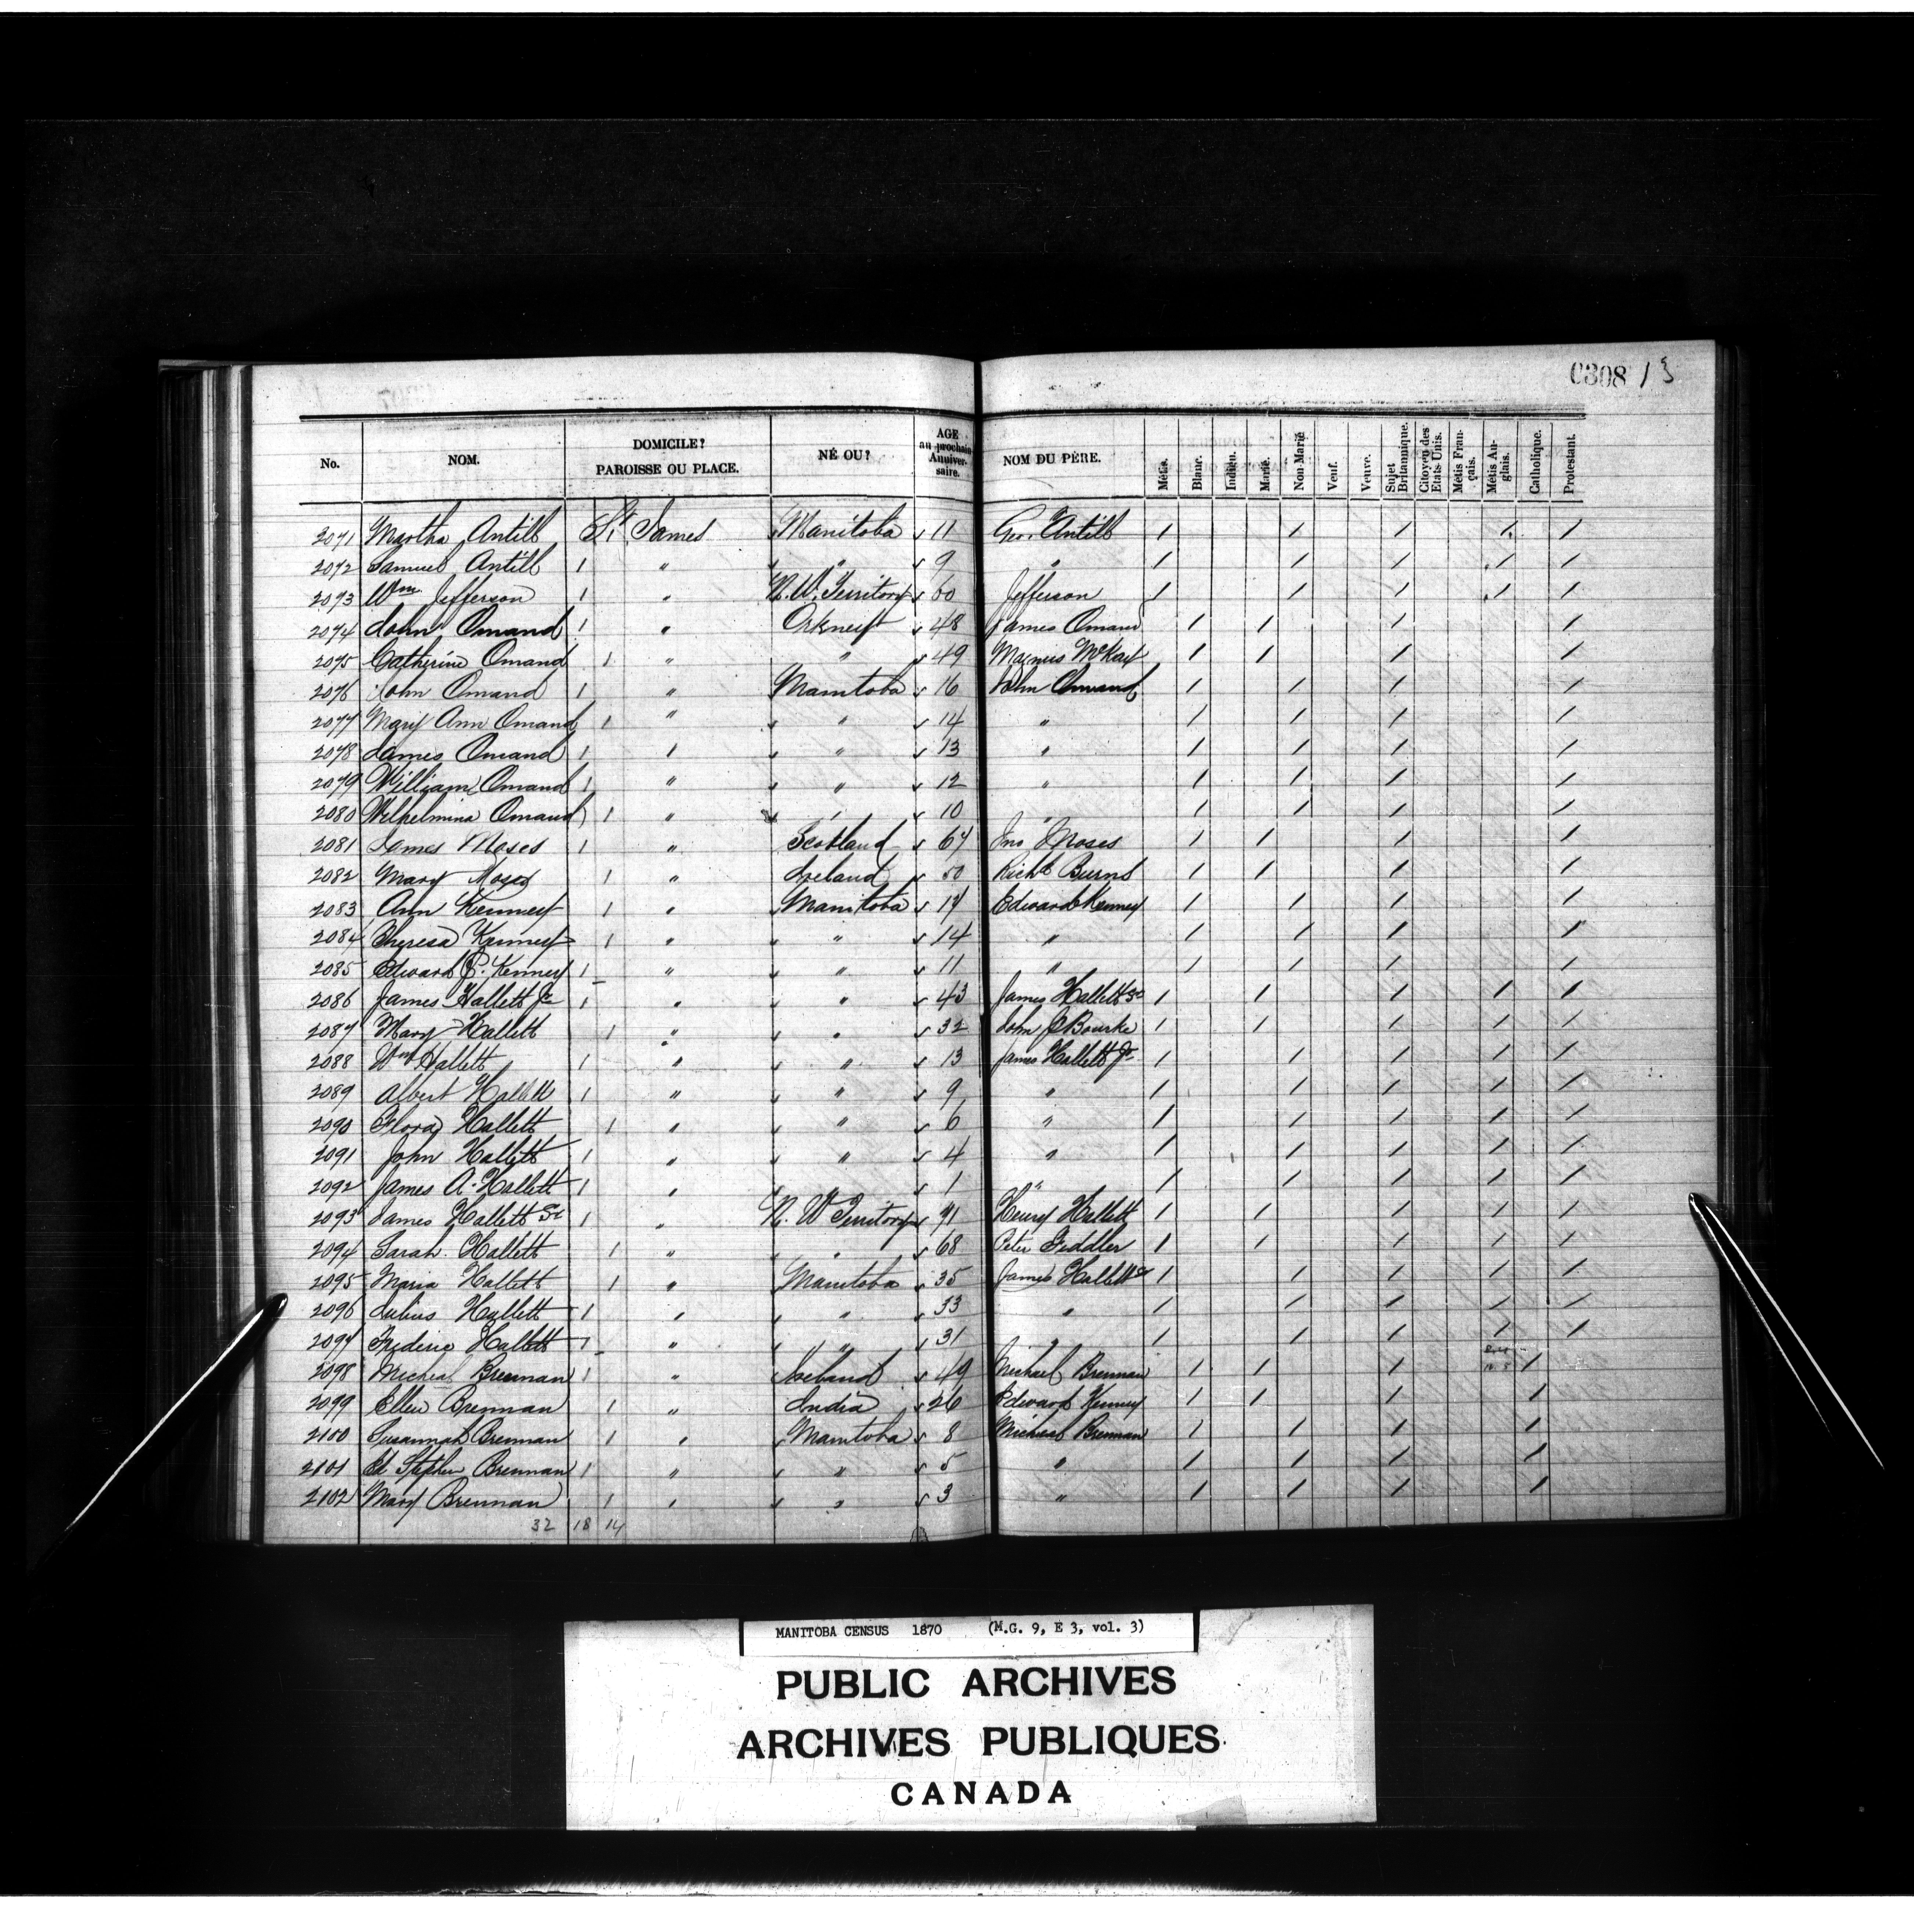 0308 13
No. NOM. DOMICILE? PAROISSE OU PLACE. NÉ OU? AGE au prochain Anniversaire. NOM DU PÈRE. Métis. Blanc. Indien. Marié. Non-Marié Veuf. Veuve. Sujet Britannique. Citoyen des Etats-Unis. Métis Français. Métis Anglais. Catholique. Protestant.
2071 Martha Antill St. James Manitoba 11 Geo. Antill / / / / /
2072 Samuel Antill 1 " " 9 " / / / / /
2073 Wm Jefferson 1 " N. W. Territory 60 Jefferson / / / / /
2074 John Omand 1 " Orkney 48 James Omand / / / /
2075 Catherine Omand 1 " " 49 Magnus McKay / / / /
2076 John Omand 1 " Manitoba 16 John Omand / / / /
2077 Mary Ann Omand 1 " " 14 " / / / /
2078 James Omand 1 " " 13 " / / / /
2079 William Omand 1 " " 12 " / / / /
2080 Wilhelmina Omand 1 " " 10 " / / / /
2081 James Moses 1 " Scotland 64 Jno Moses / / / /
2082 Mary Moses 1 " Ireland 50 Richd Burns / / / /
2083 Ann Kenney 1 " Manitoba 17 Edward Kenney / / / /
2084 Theresa Kenney 1 " " 14 " / / / /
2085 Edward P. Kenney 1 " " 11 " / / / /
2086 James Hallett Jr 1 " " 43 James Hallett Sr / / / / /
2087 Mary Hallett 1 " " 32 John P Bourke / / / / /
2088 Wm Hallett 1 " " 13 James Hallett Jr / / / / /
2089 Albert Hallett 1 " " 9 " / / / / /
2090 Flora Hallett 1 " " 6 " / / / / /
2091 John Hallett 1 " " 4 " / / / / /
2092 James A. Hallett 1 " " 1 " / / / / /
2093 James Hallett Sr 1 " N. W Territory 71 Henry Hallett / / / / /
2094 Sarah Hallett 1 " " 68 Peter Fiddler / / / / /
2095 Maria Hallett 1 " Manitoba 35 James Hallett Sr / / / / /
2096 Julius Hallett 1 " " 33 " / / / / /
2097 Frederic Hallett 1 " " 31 " / / / / /
2098 Micheal Brennan 1 " Ireland 49 Michael Brennan / / / /
2099 Ellen Brennan 1 " India 26 Edward Kenney / / / /
2100 Susannah Brennan 1 " Manitoba 8 Micheal Brennan / / / /
2101 Ed Stephen Brennan 1 " " 5 " / / / /
2102 Mary Brennan 1 " " 3 " / / / /
32 18 14
MANITOBA CENSUS 1870 (M.G. 9, E 3, vol. 3)
PUBLIC ARCHIVES
ARCHIVES PUBLIQUES
CANADA